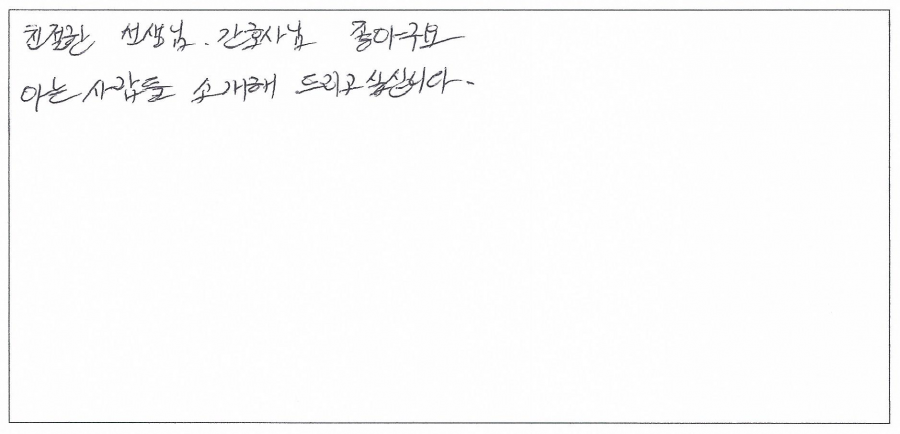 친절한 선생님. 간호사님 좋아구요
아는 사람들 소개해 드리고 싶습니다.